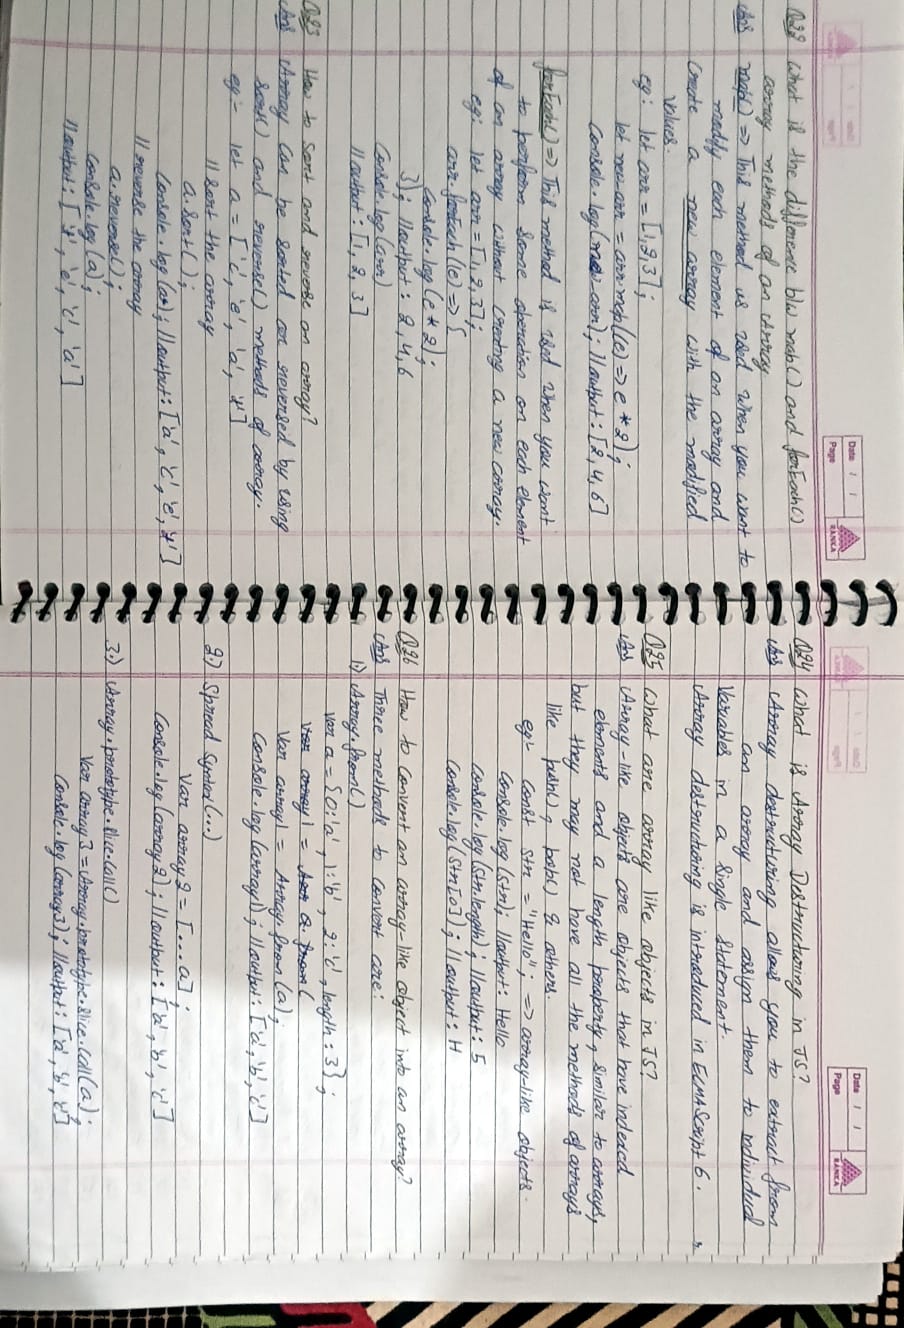 Date / /
Page
RANKA
Q22 What is the difference b/w map() and forEach()
array methods of an Array
Ans map() => This method is used when you want to
modify each element of an array and
create a new array with the modified
values.
eg: let arr = [1,2,3];
let newarr = arr.map((e) => e * 2);
console.log(newarr); //output: [2,4,6]
forEach() => This method is used when you want
to perform some operation on each element
of an array without creating a new array.
eg: let arr = [1,2,3];
arr.forEach((e) => {
console.log(e * 2);
}); //output: 2,4,6
console.log(arr)
//output: [1,2,3]
Q23 How to sort and reverse an array?
Ans Array can be sorted or reversed by using
sort() and reverse() methods of array.
eg:- let a = ['c', 'e', 'a',
//sort the array
a.sort();
console.log(a); //output: ['a', 'c', 'e',
//reverse the array
a.reverse();
console.log(a);
//output: 'e', 'c', 'a']
Date / /
Page
RANKA
Q24 What is Array Destructuring in JS?
Ans Array destructuring allows you to extract from
an array and assign them to individual
variables in a single statement.
Array destructuring is introduced in ECMAScript 6.
Q25 What are array like objects in JS?
Ans Array-like objects are objects that have indexed
elements and a length property, similar to arrays,
but they may not have all the methods of arrays
like push(), pop() & others.
eg:- const str = "Hello"; => array-like objects.
console.log(str); //output: Hello
console.log(str.length); //output: 5
console.log(str[0]); //output: H
Q26 How to convert an array-like object into an array?
Ans Three methods to convert are:
1) Array.from()
var a = {0:'a', 1:'b', 2:'c', length: 3};
var array1 = a from(
var array1 = Array.from(a);
console.log(array1); //output: ['a', 'b', 'c']
2) Spread Syntax(...)
var array2 = [...a];
console.log(array2); //output: ['a', 'b', 'c']
3.) Array.prototype.slice.call()
var array3 = Array.prototype.slice.call(a);
console.log(array3); //output: ['a', 'b', 'c']